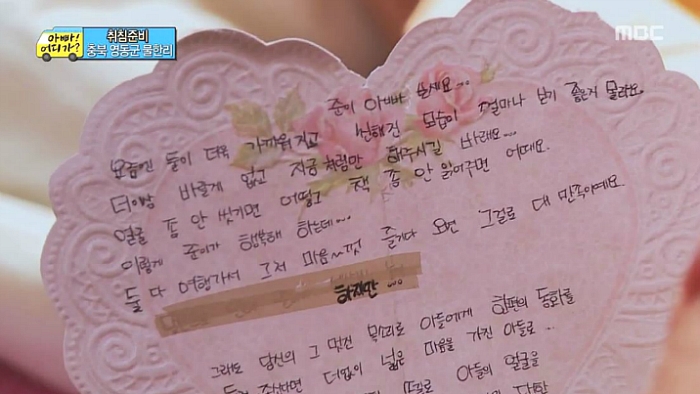 아빠!
어디가?
취침준비
충북 영동군 물한리
MBC
준이 아빠 보세요...
요즘엔 둘이 더욱 가까워지고 친해진 모습이 얼마나 보기 좋은지 몰라요.
더이상 바랄게 없고 지금처럼만 해주시길 바래요...
얼굴 좀 안 씻기면 어떻고 책 좀 안 읽어주면 어때요.
이렇게 준이가 행복해 하는데...
둘 다 여행가서 그저 마음껏 즐기다 오면 그걸로 대 만족이에요.
하지만...
그래도 당신의 그 멋진 목소리로 아들에게 한편의 동화를
더없이 넓은 마음을 가진 아들로...
아들의 얼굴을